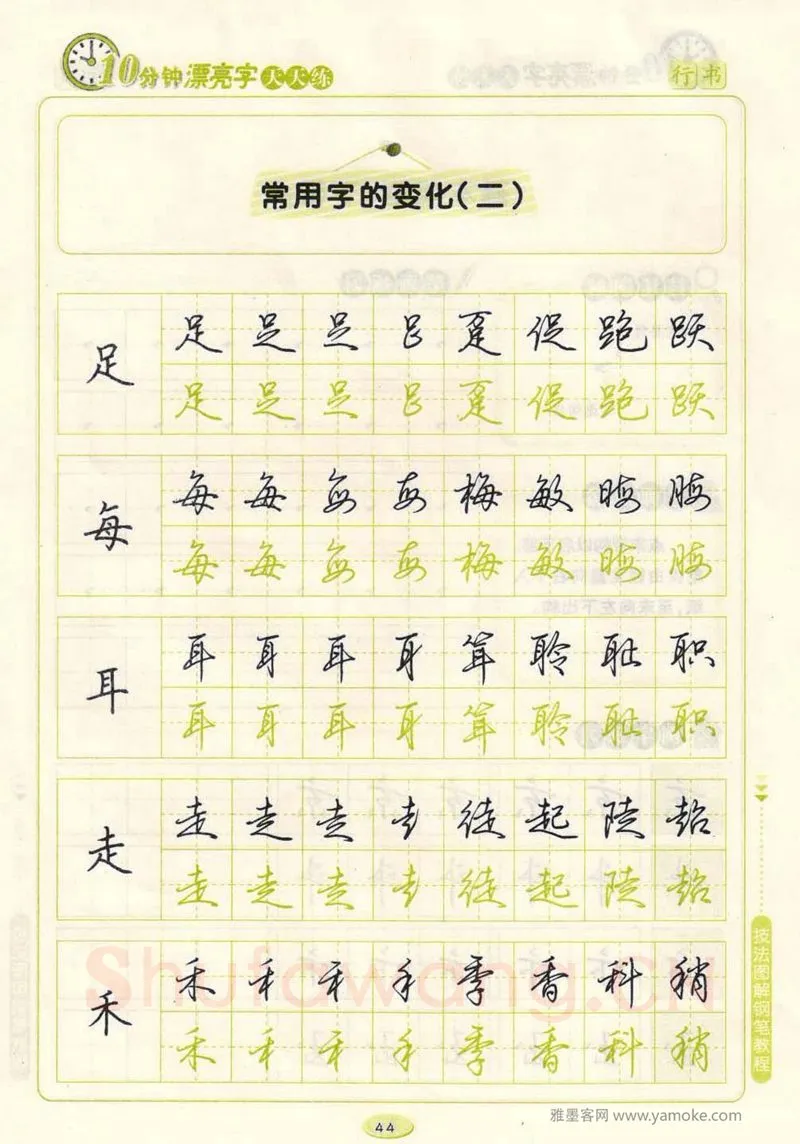 10分钟漂亮字天天练
行书
常用字的变化(二)
足 足 足 足 足 趸 促 跑 跃
足 足 足 足 趸 促 跑 跃
每 每 每 每 每 梅 敏 晦 脢
每 每 每 每 梅 敏 晦 脢
耳 耳 耳 耳 耳 耷 聆 耻 职
耳 耳 耳 耳 耷 聆 耻 职
走 走 走 走 走 徒 起 陡 超
走 走 走 走 徒 起 陡 超
禾 禾 禾 禾 禾 季 香 科 稍
禾 禾 禾 禾 季 香 科 稍
Shufawang.cn
技法图解钢笔教程
44
雅墨客网 www.yamoke.com